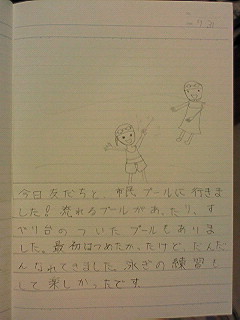 今日友だちと、市民プールに行きま
した！流れるプールがあったり、す
べり台のついたプールもありま
した。最初はつめたかったけど、だんだ
んなれてきました。泳ぎの練習も
して楽しかったです。